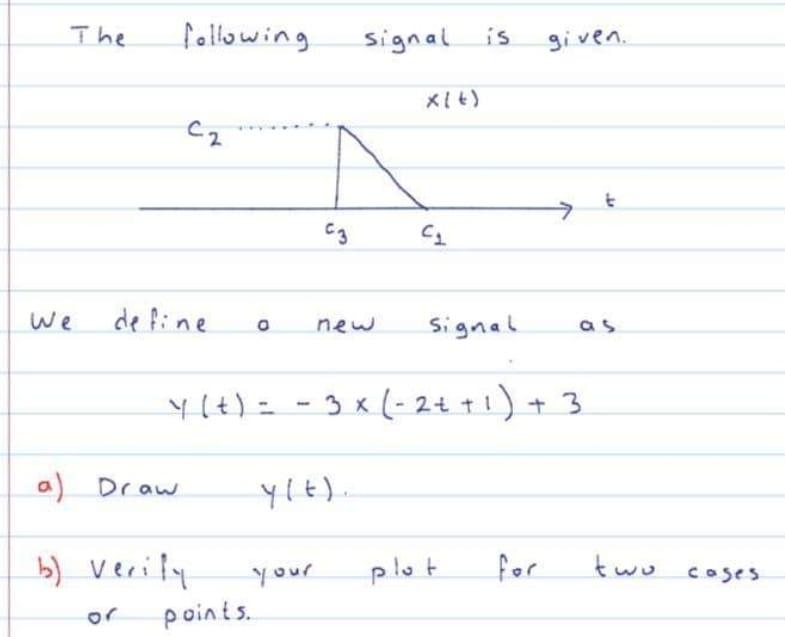 The following signal is given.
x(t)
C2
t
C3 C1
We define a new signal as
y(t) = - 3 x (-2t + 1) + 3
a) Draw y(t).
b) Verify your plot for two cases
or points.